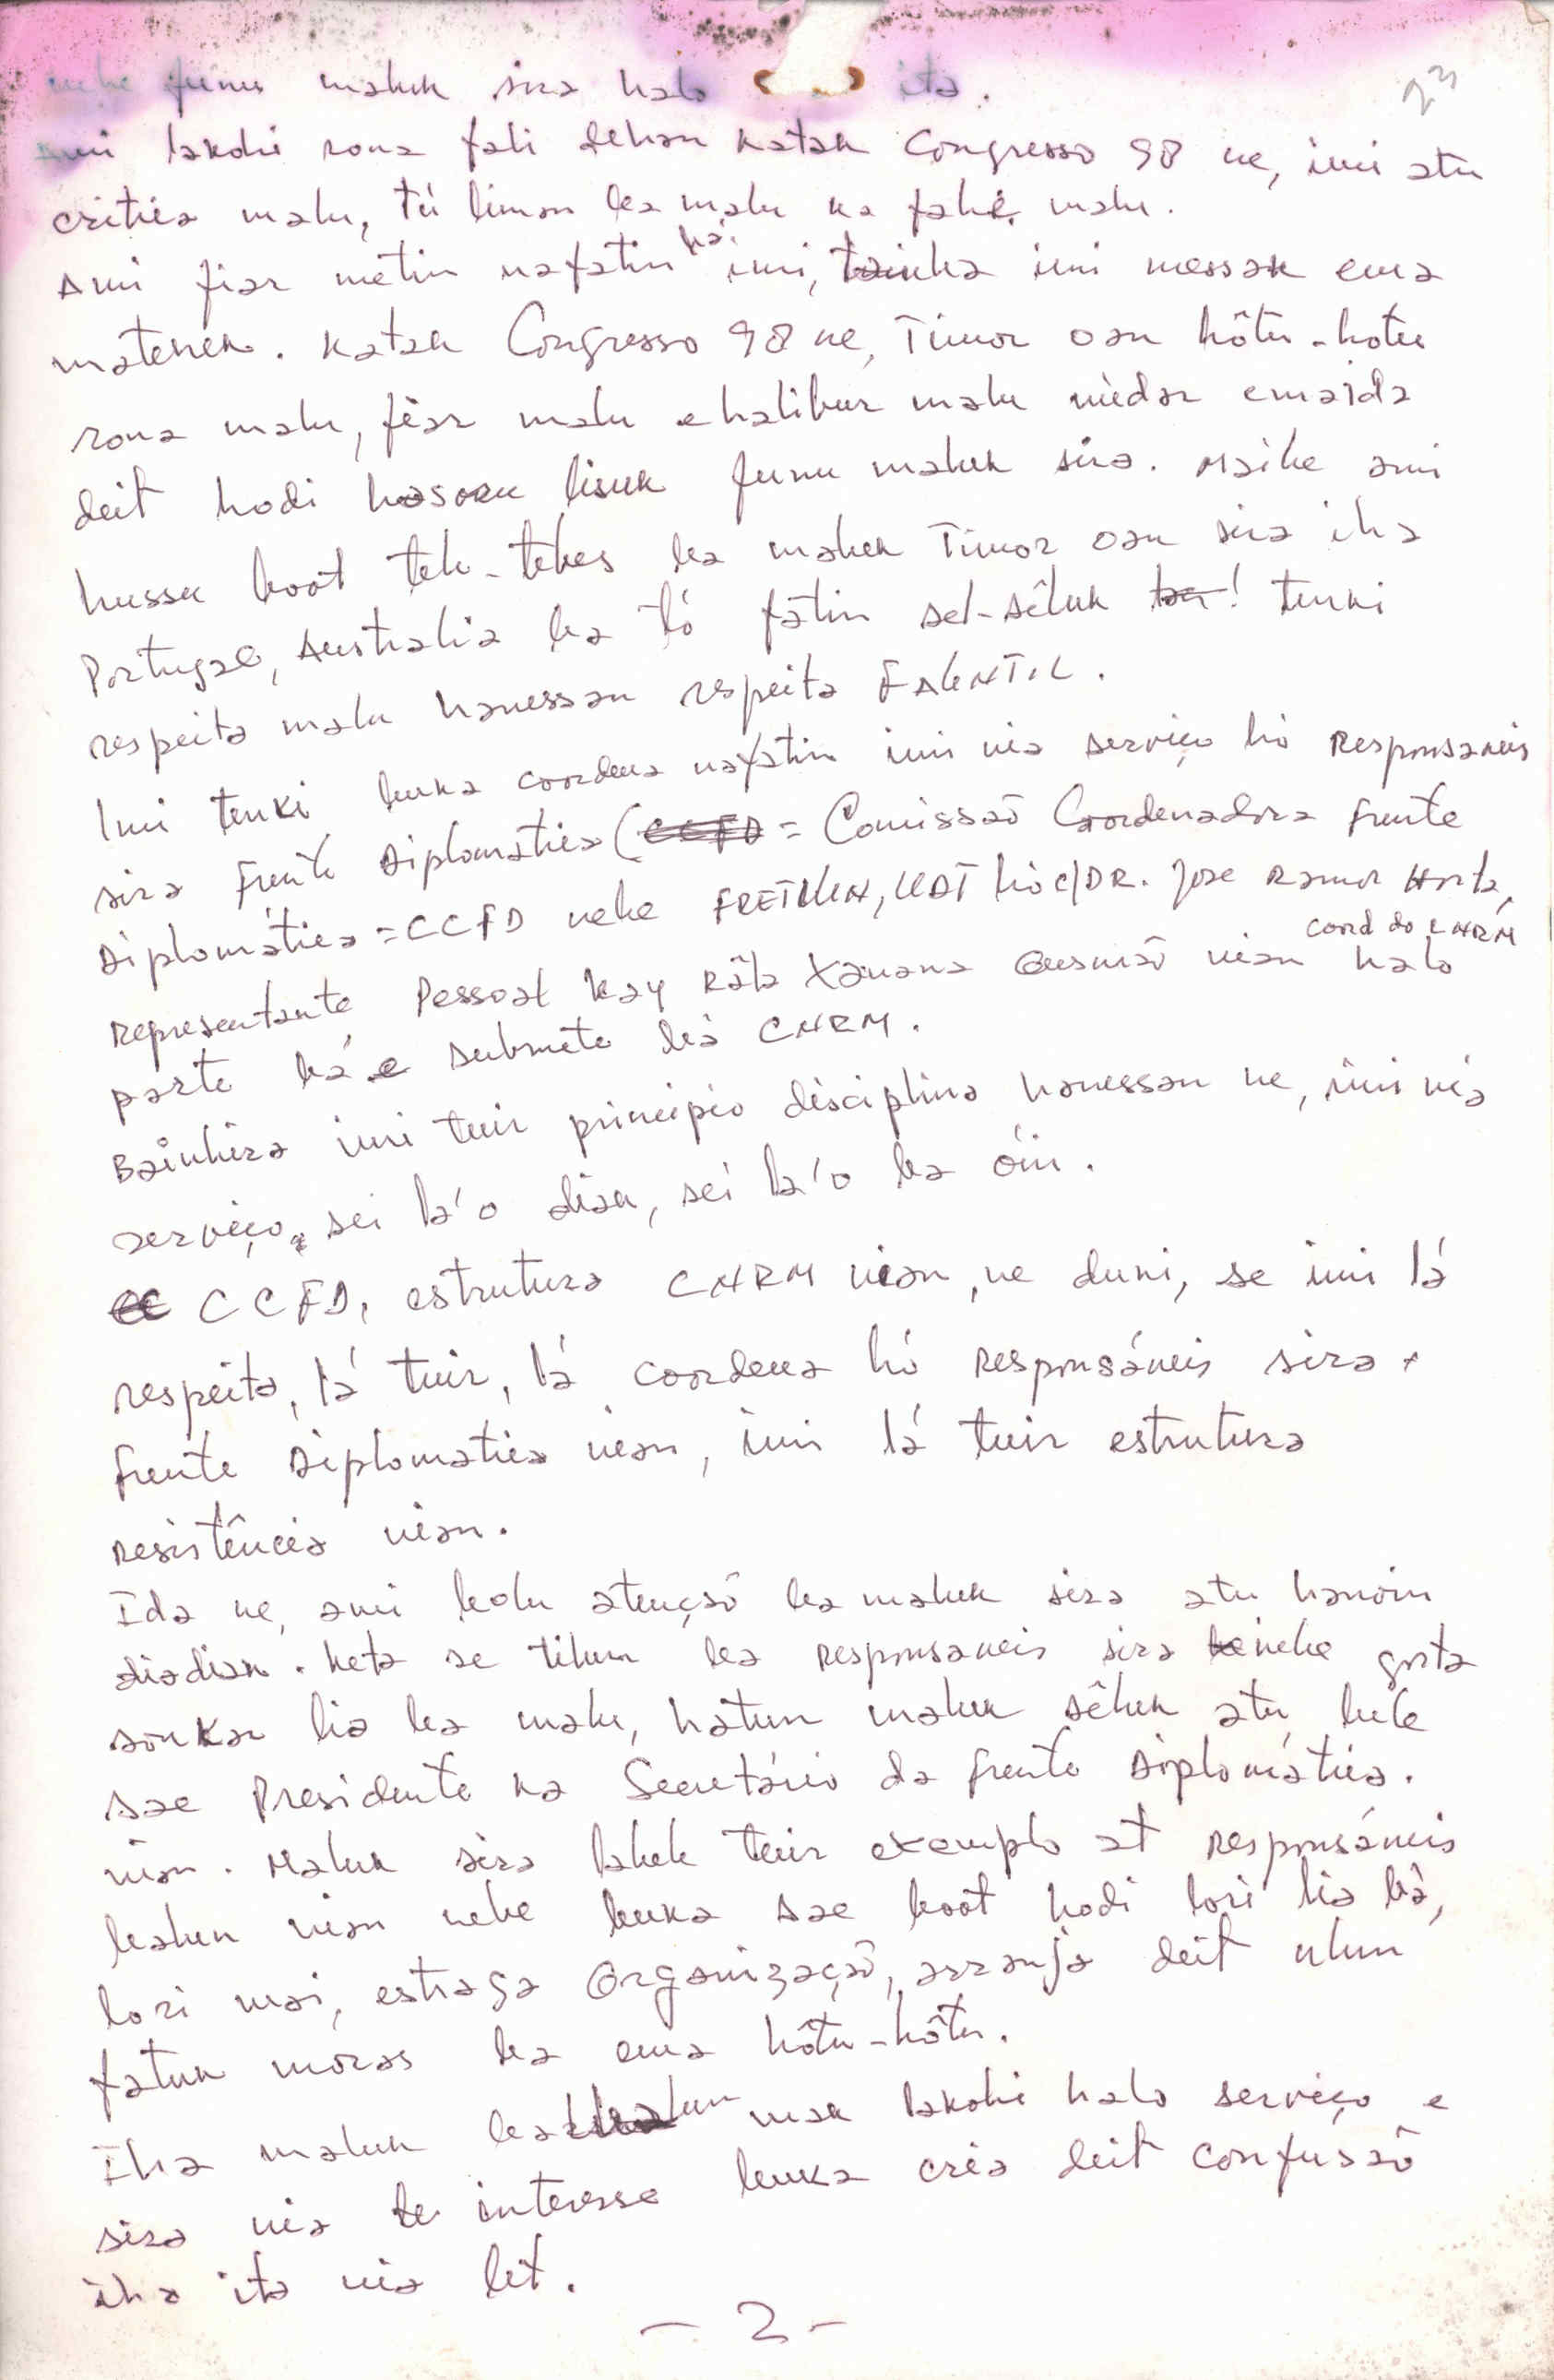 23
nebe funu maluk sira halo ita.
Ami lakohi rona fali dehan katak Congresso 98 ne, imi atu
critica malu, tú liman ba malu ka fahe malu.
Ami fiar metin nafatin bá imi, tainba imi messak ema
matenek. Katak Congresso 98 ne, Timor oan hôtu-hotu
rona malu, fiar malu e halibur malu nùdar emaida
deit hodi hasoru lisuk funu maluk sira. Maibe ami
hussu boót teb-tebes ba maluk Timor oan sira iha
Portugal, Australia ba tó fatin sel-sêluk tan! Tenki
respeita malu hanessan respeita FALINTIL.
Imi tenki buka coordena nafatin imi nia serviço hó Responsaveis
sira Frente Diplomatica (CCFD = Comissaõ Coordenadora Frente
Diplomática = CCFD nebe FRETILIN, UDT hó c/DR. Jose Ramos Horta,
Representante Pessoal Kay Rala Xanana Gusmaõ nian halo
Coord do CNRM
parte bá e submete bá CNRM.
Bainhira imi tuir principio disciplina hanessan ne, imi nia
serviço, sei la'o diak, sei la'o ba óin.
CCFD, estrutura CNRM nian, ne duni, se imi lá
respeita, lá tuir, lá coordena hó Responsáveis sira
Frente Diplomatica nian, imi lá tuir estrutura
Resistência nian.
Ida ne, ami bolu atençaõ ba maluk sira atu hanoin
diadiak. Keta se tilun ba Responsaveis sira nebe gosta
sõukar lia ba malu, hatun maluk sêluk atu bele
sae Presidente ka Secretário da Frente Diplomática.
nian. Maluk sira labele tuir exemplo at Responsáveis
balun nian nebe buka sae boót hodi lori lia bà,
lori mai, estraga Organizaçaõ, arranja deit ulun
fatuk moras ba ema hôtu-hôtu.
Iha maluk balun mak lakohi halo serviço e
sira nia interesse buka cria deit confusaõ
iha ita nia let.
- 2 -